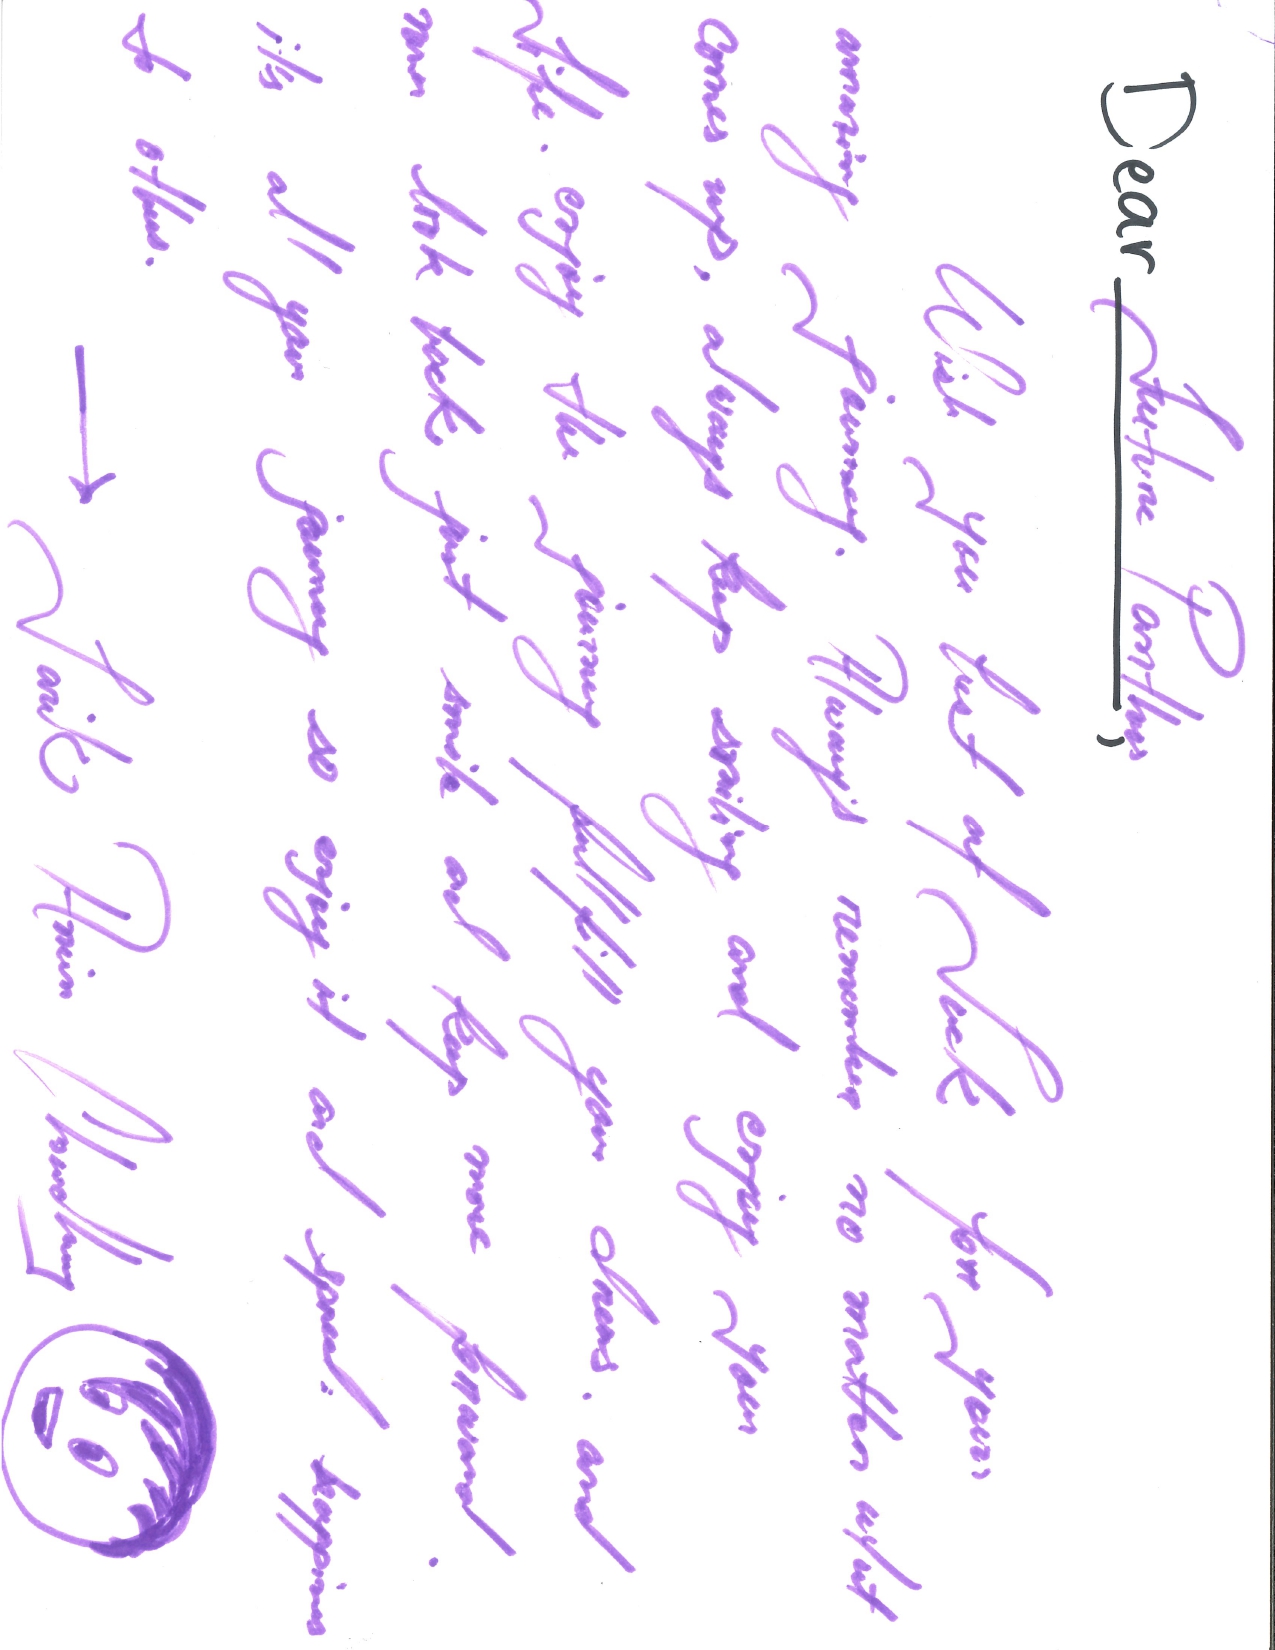 Dear Future Panthers,
Wish you best of luck for your
amazing journey. Always remember no matter what
comes up, always keep smiling and enjoy your
life. enjoy the journey fullfill your dreams. and
look back just smile and keep move forward.
it's all your journey so enjoy it and spread happiness
to others.
→ Amin